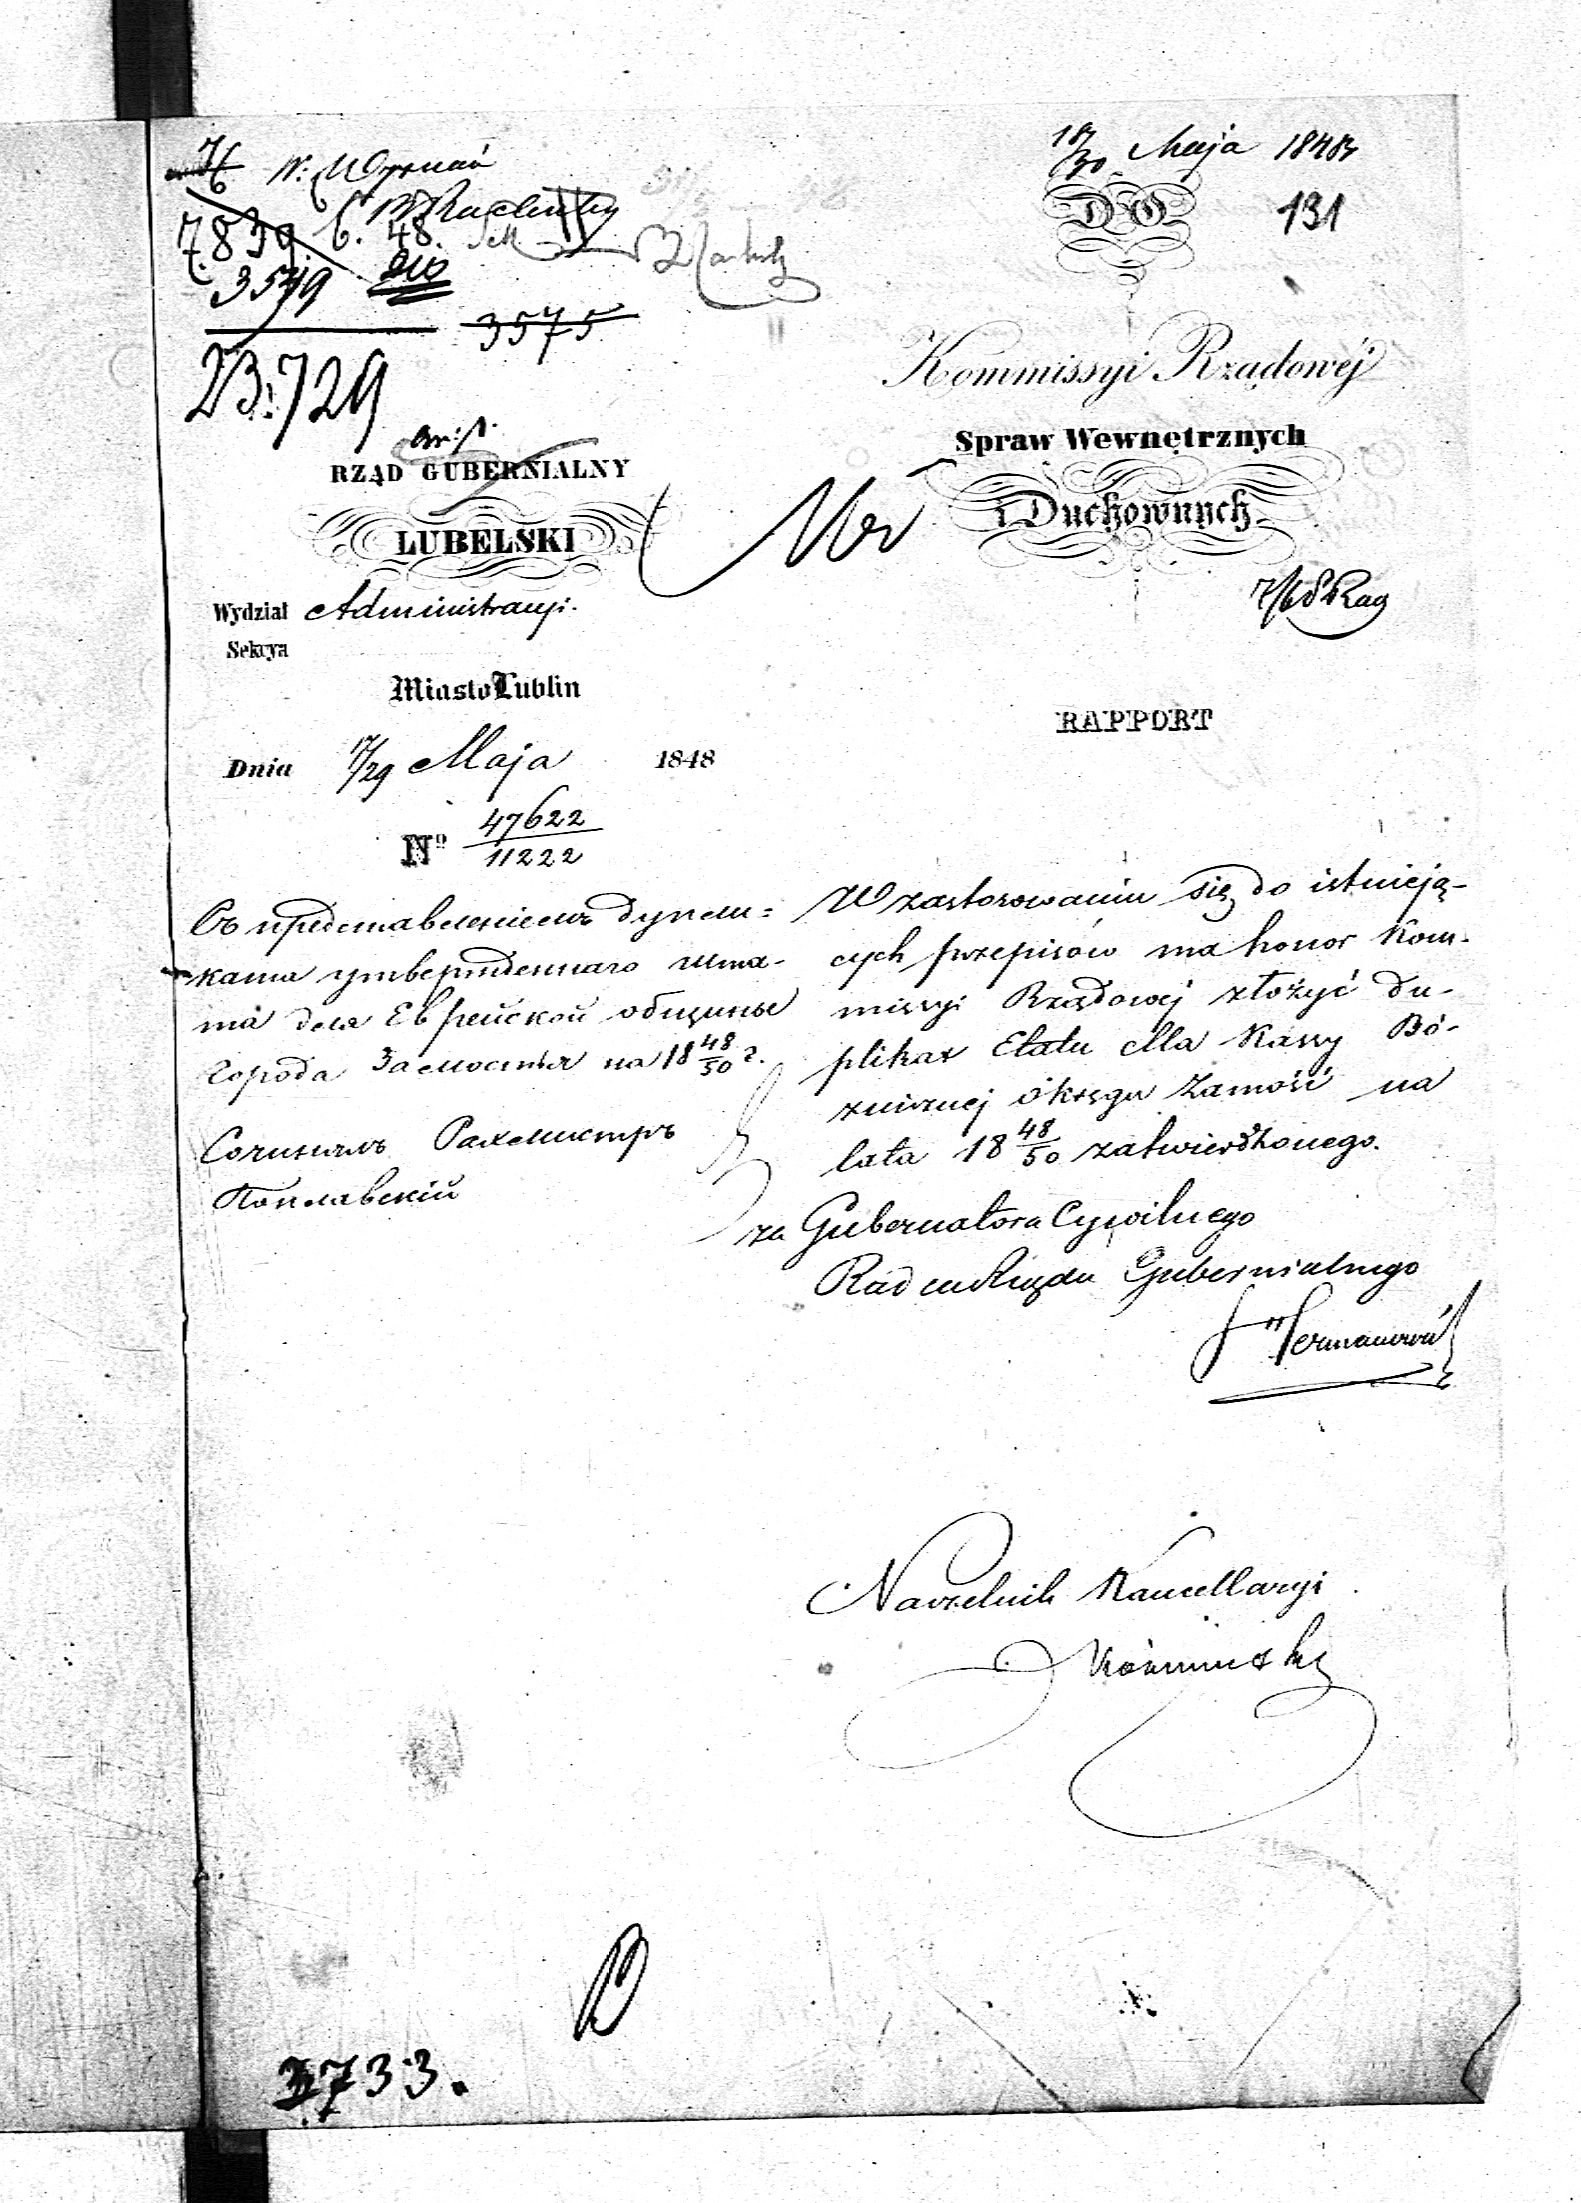 18/30 Maja 1848
131
7839
6. 48.
3549
3575
23.729
DO
Kommissyi Rządowéj
Spraw Wewnętrznych
i Duchownych
RZĄD GUBERNIALNY
LUBELSKI
Wydział Administracyi.
Sekcya
Miasto Lublin
Dnia 17/29 Maja 1848
No 47622/11222
RAPPORT
Съ представленіемъ дупли=
ката утвержденнаго шта-
та для Еврейской общины
города Замостья на 18 48/50 г.
Сочинилъ Рахмистръ
Поплавскій
W zastosowaniu się do istnieją-
cych przepisów ma honor Kom-
missyi Rządowej złożyć du-
plikat Etatu dla Kassy Bó-
żnicznej okręgu Zamość na
lata 18 48/50 zatwierdzonego.
za Gubernatora Cywilnego
Radca Rządu Gubernialnego
Naczelnik Kancellaryi
3733.